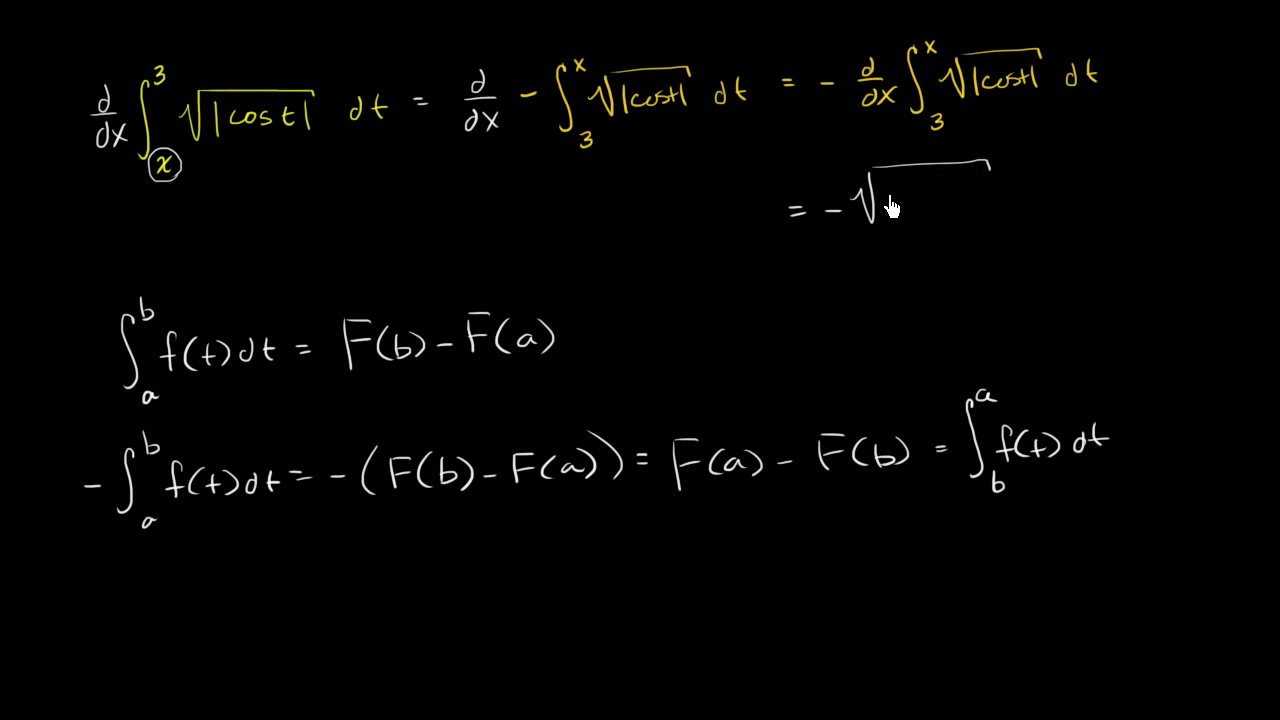 d/dx ∫_x^3 √|cos t| dt = d/dx - ∫_3^x √|cost| dt = - d/dx ∫_3^x √|cost| dt
= - √
∫_a^b f(t)dt = F(b) - F(a)
- ∫_a^b f(t)dt = - (F(b) - F(a)) = F(a) - F(b) = ∫_b^a f(t) dt